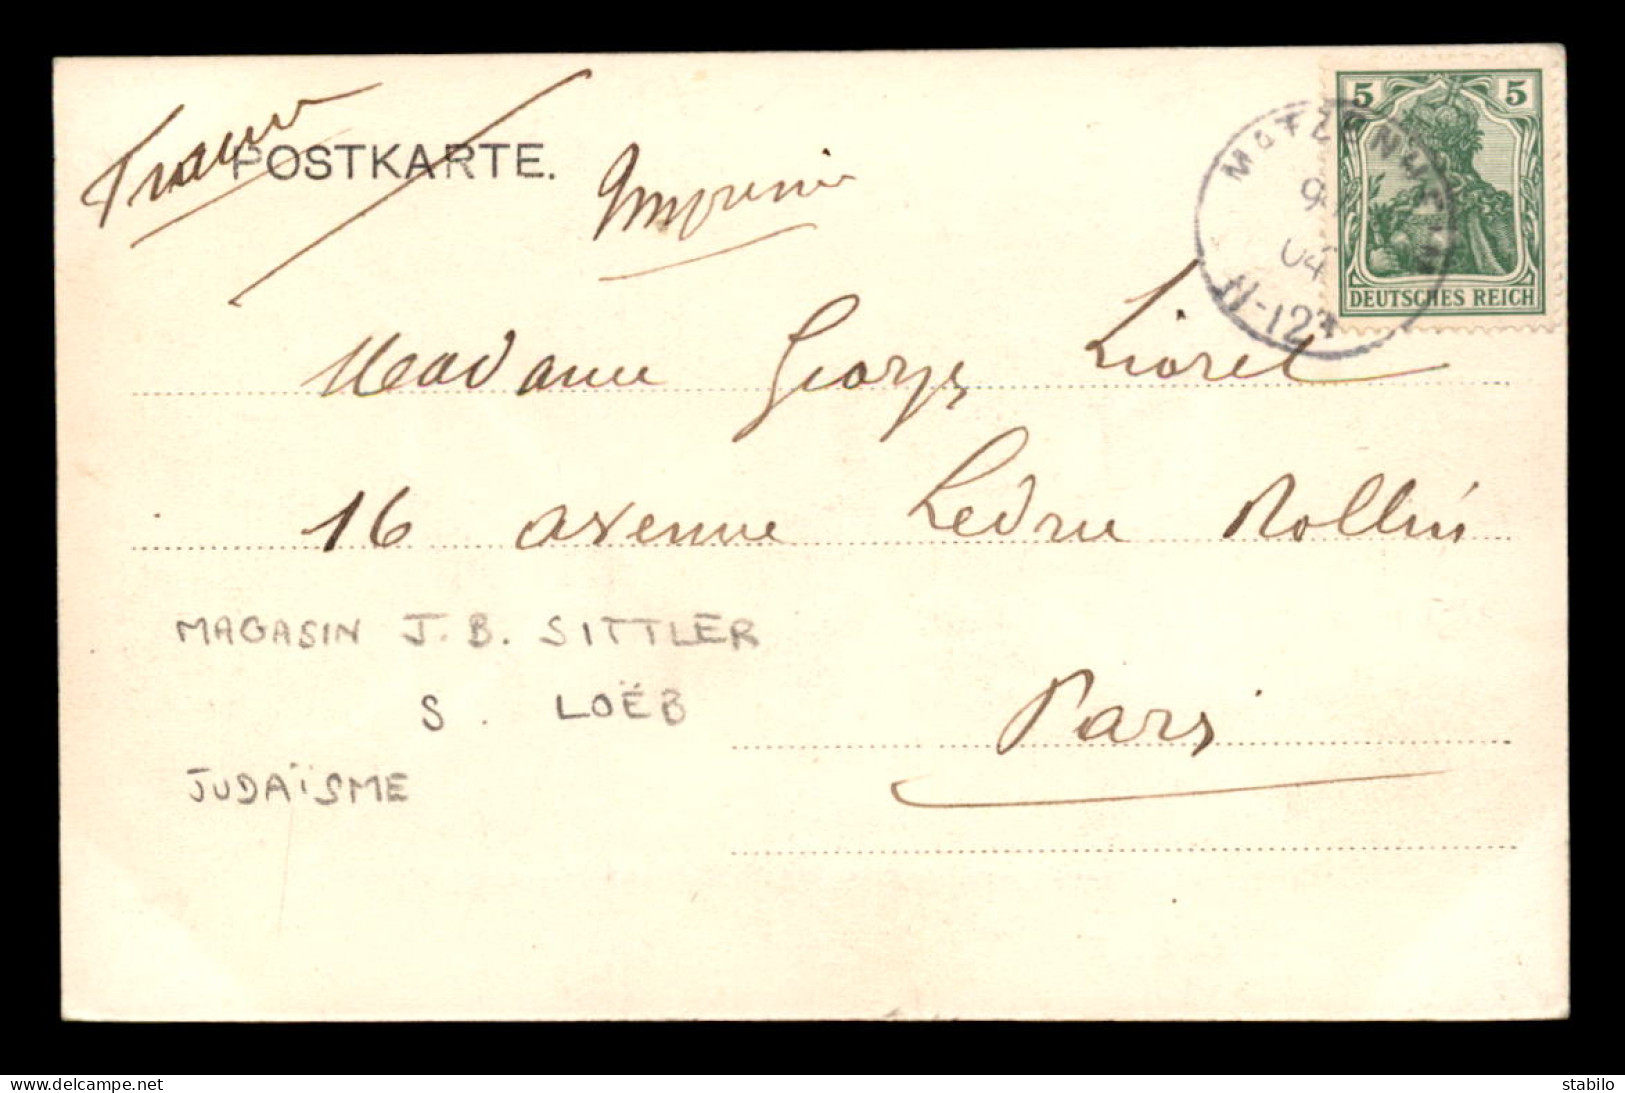 France
POSTKARTE.
Imprimé
5 5
DEUTSCHES REICH
MATZENHEIM
04
11-12
Madame Georges Lioret
16 avenue Ledru Rollin
MAGASIN J.B. SITTLER
S. LOËB
Paris
JUDAÏSME
delcampe.net
stabilo